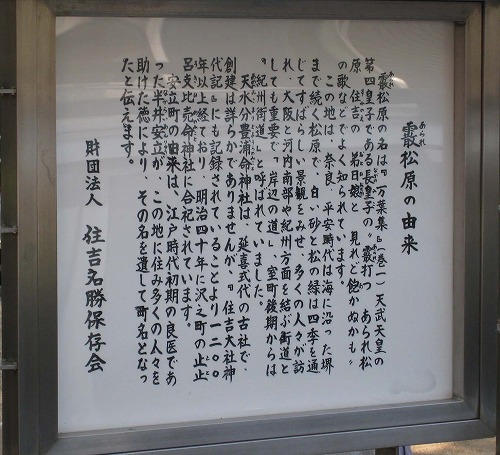 霰松原の由来
あられ
霰松原の名は『万葉集』（巻一）天武天皇の
第四皇子である長皇子の〝霰打つ　あられ松
原　住吉の　弟日娘と　見れど飽かぬかも〟
の歌などでよく知られています。
この地は、奈良、平安時代は海に沿った堺
まで続く松原で、白い砂と松の緑は四季を通
じてすばらしい景観をみせ、多くの人々が訪
れ、大阪と河内南部や紀州方面を結ぶ街道と
しても重要で「岸辺の道」、室町後期からは
「紀州街道」と呼ばれていました。
天水分豊浦命神社は、延喜式代の古社で、
創建は詳らかでありませんが、『住吉大社神
代記』にも記録されていることより一二〇〇
年以上経ており、明治四十年に沢之町の止止
呂支比売命神社に合祀されています。
安立町の由来は、江戸時代初期の良医であ
った半井安立が、この地に住み多くの人々を
助けた徳により、その名を遺して町名となっ
たと伝えます。
財団法人　住吉名勝保存会